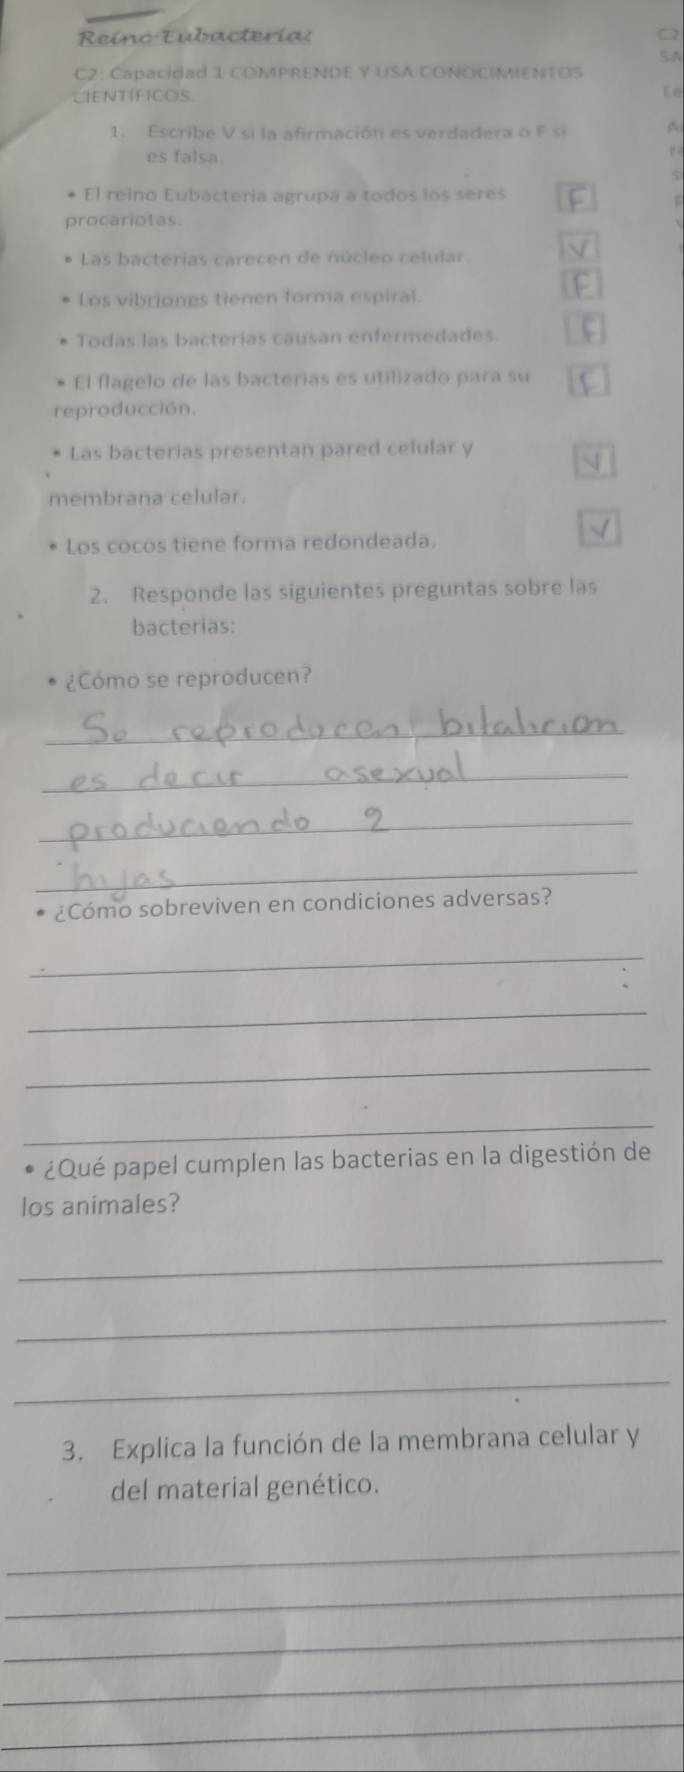 Reino Eubacteria:
C2: Capacidad 1 COMPRENDE Y USA CONOCIMIENTOS
CIENTÍFICOS.
1. Escribe V si la afirmación es verdadera o F si
es falsa.
• El reino Eubacteria agrupa a todos los seres F
procariotas.
• Las bacterias carecen de núcleo celular. V
• Los vibriones tienen forma espiral. F
• Todas las bacterias causan enfermedades. F
• El flagelo de las bacterias es utilizado para su F
reproducción.
• Las bacterias presentan pared celular y V
membrana celular.
• Los cocos tiene forma redondeada. V
2. Responde las siguientes preguntas sobre las
bacterias:
• ¿Cómo se reproducen?
Se reproducen bitalicion
es decir asexual
produciendo 2
hijas
• ¿Cómo sobreviven en condiciones adversas?
• ¿Qué papel cumplen las bacterias en la digestión de
los animales?
3. Explica la función de la membrana celular y
del material genético.
C2
SA
Le